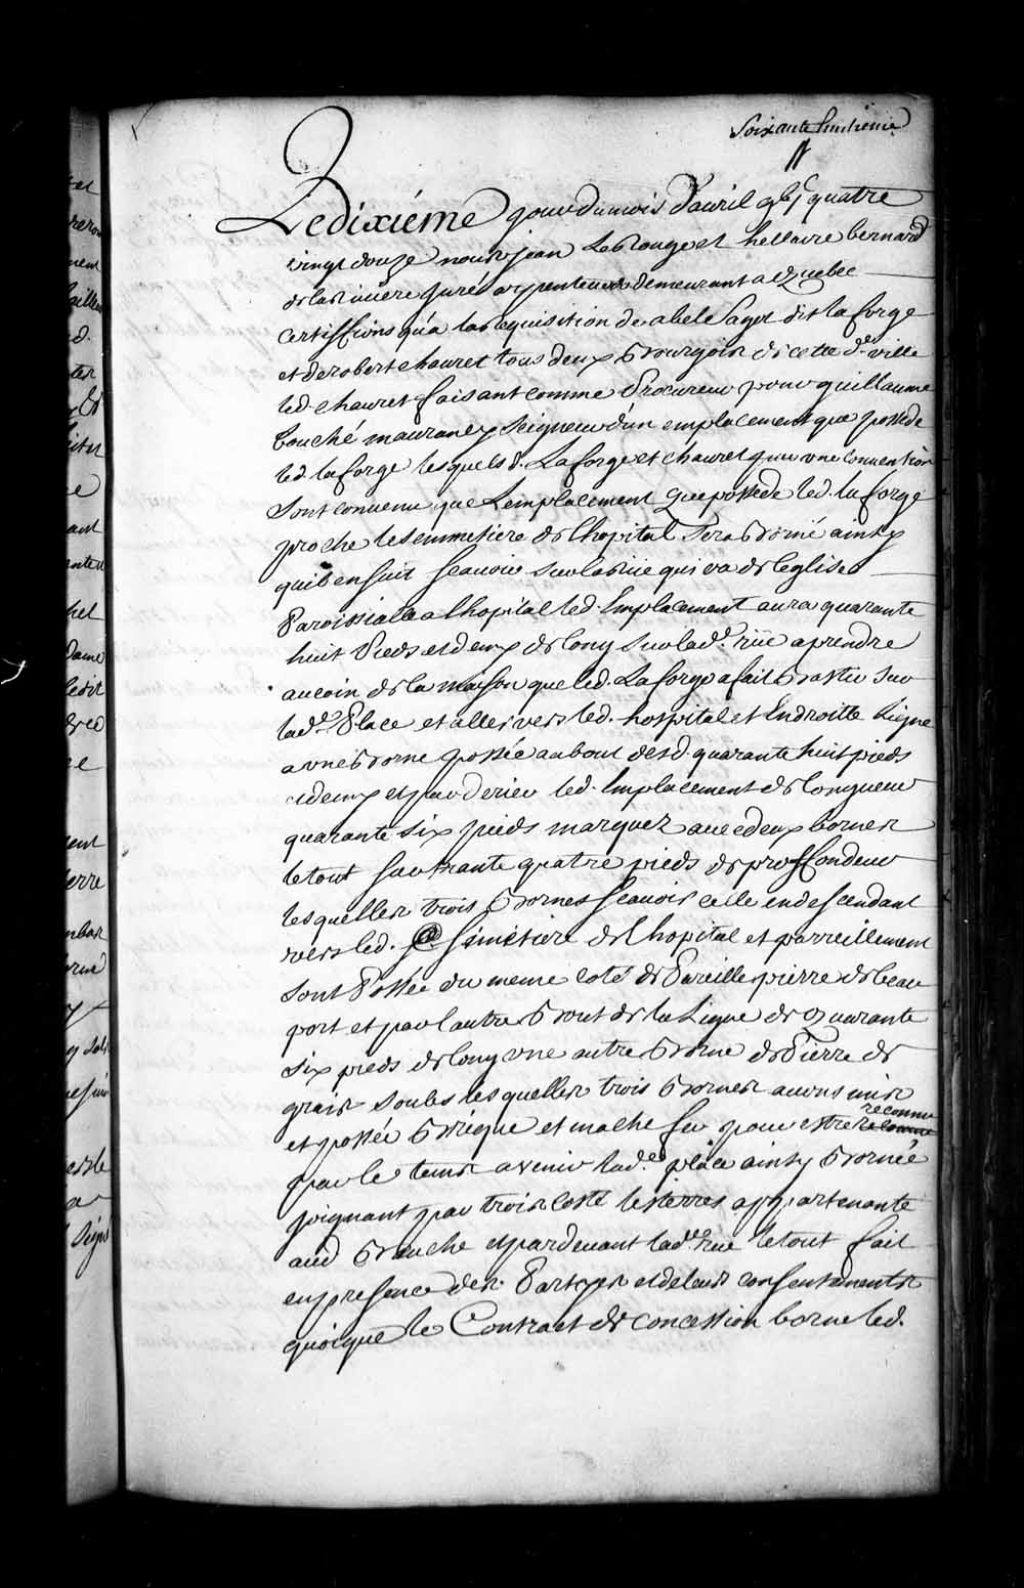 Soixante huitieme
Le dixiéme jour du mois d'auril gbjc quatre
vingt douze nous jean Le Rouge et hellaire bernard
de la riuiere juré arpenteurs demeurant a quebec
certiffions qu'a la requisition de abel Sagot dit la forge
et de robert chouret tous deux Bourgois de cette de. ville
led. chouret faisant comme Procureur pour guillaume
bouché maurancy seigneur d'un emplacement que possede
led. laforge lesquels d. Laforge et chouret par une conuention
sont conuenu que L'emplacement que possede led. la forge
proche le semmetiere de lhopital sera Borné ainsy
quil ensuit scauoir sur la rüe qui va de leglise
Paroissialle a lhopital led. Emplacement aura quarante
huit Pieds et demy de long sur lad. rüe a prendre
au coin de la maison que led. Laforge a fait Bastir sur
lade. Place et aller vers led. hospital et Endroitte Ligne
a vne Borne possée au bout desd. quarante huit pieds
et demy et par derier led. Emplacement de longueur
quarante six pieds marquez auec deux borner
le tout sur trante quatre pieds de proffondeur
lesquelles trois Bornes scauoir celle en descendant
vers led. simetiere de lhopital et parreillement
sont Possée du meme coté de Pareille pierre de beau
port et par l'autre Bout de la Ligne de quarante
six pieds de long vne autre Borne de Pierre de
grais soubs lesquelles trois Bornes auons mis
et possée Brique et mache fer pour estre reconnue
reconnu
par le tems avenir lade. place ainsy Bornée
joignant par trois costé les terres appartenante
aud Bouche et par deuant lade. rue le tout fait
en presence des Partyes et de leurs consentements
quoique le Contract de concession borne led.